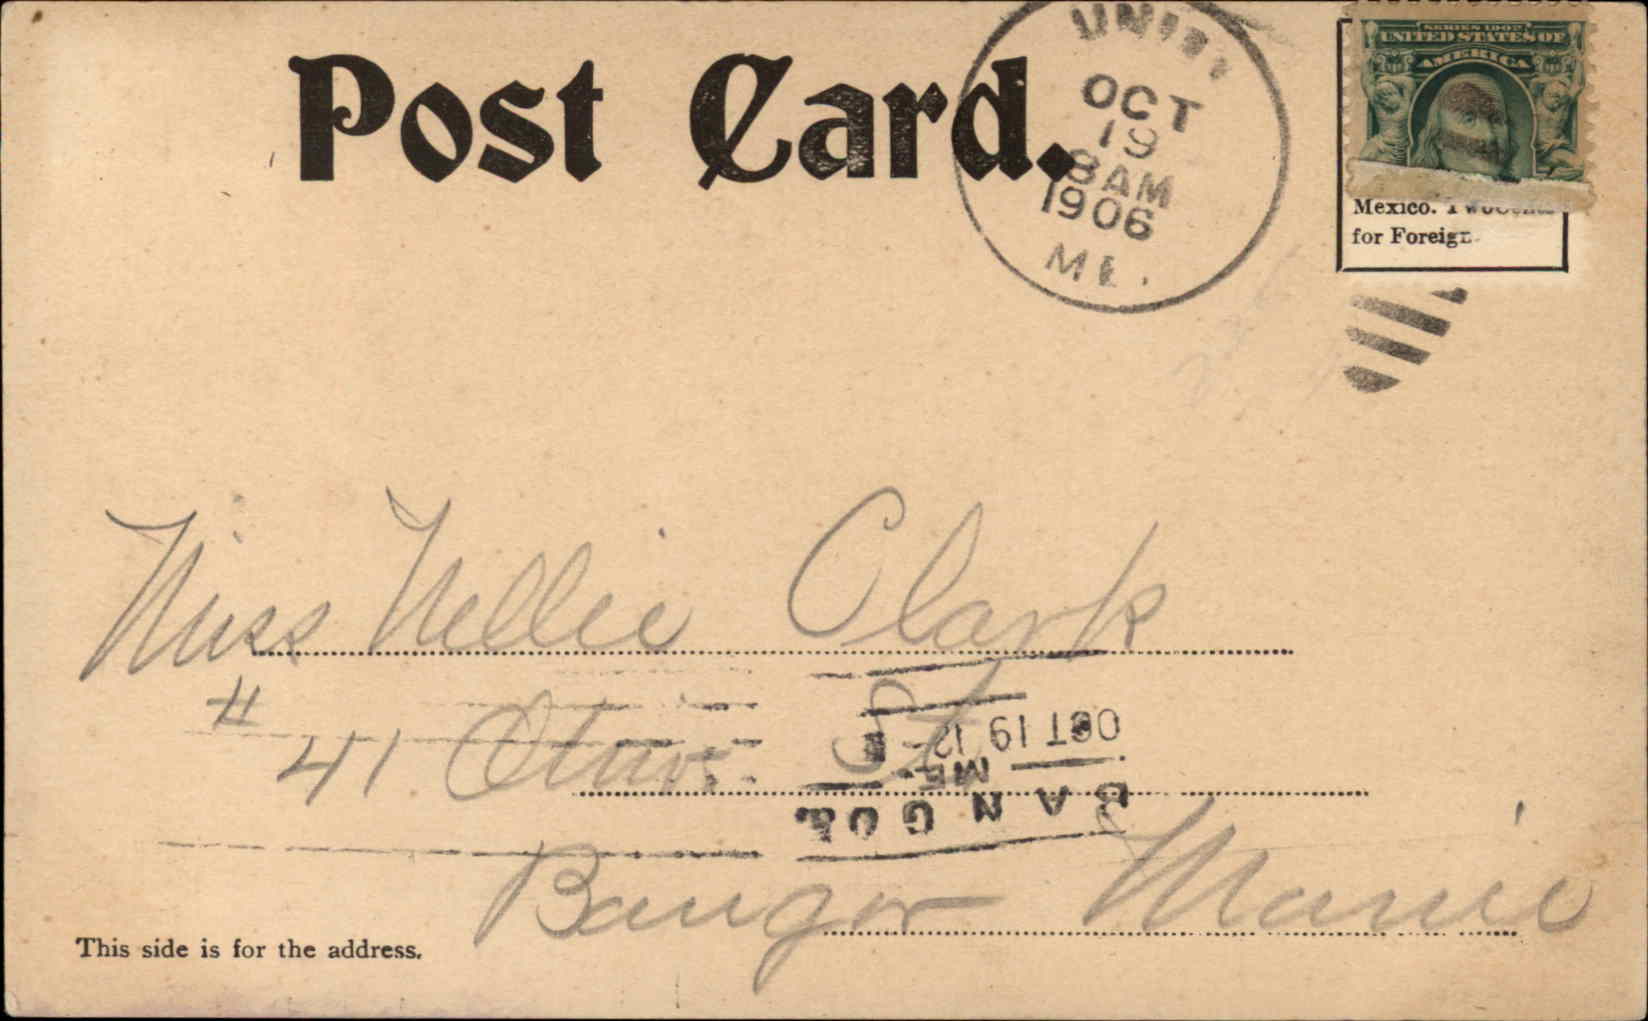 Post Card.
UNITY
OCT
19
8AM
1906
ME.
SERIES 1902
UNITED STATES OF
AMERICA
Mexico. Two Cents
for Foreign.
Miss Nellie Clark
# 41 St
OCT 19 12
ME.
BANGOR.
Bangor Maine
This side is for the address.